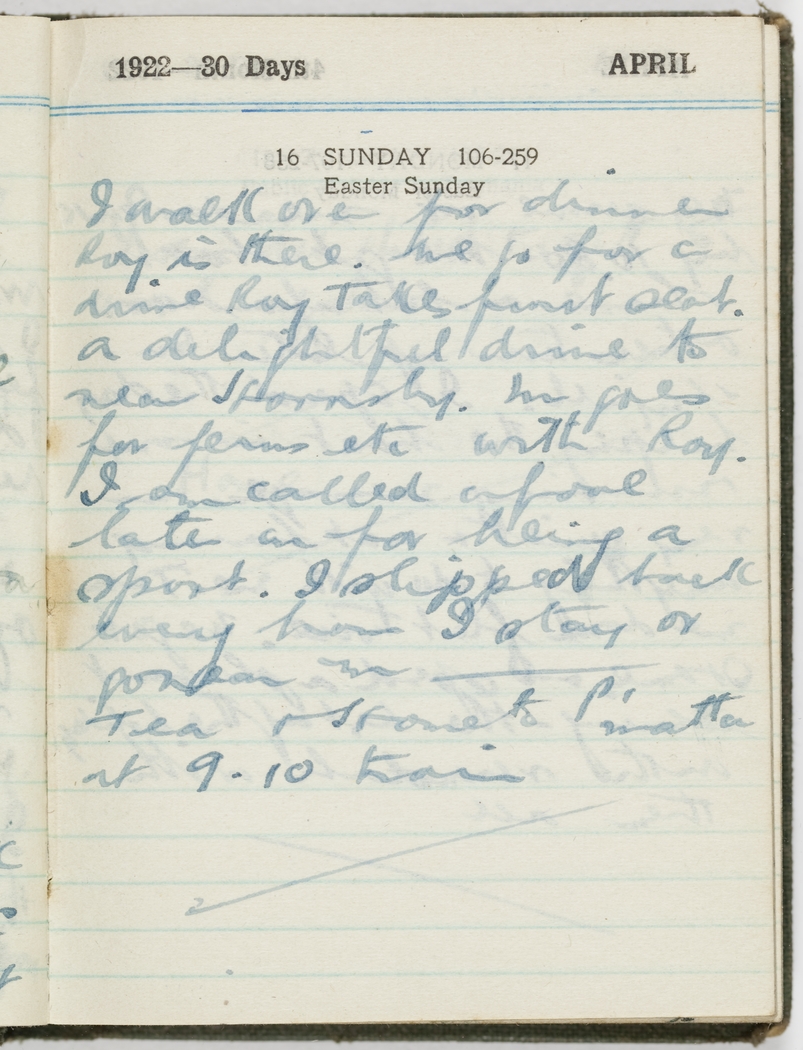 1922—30 Days APRIL
16 SUNDAY 106-259
Easter Sunday
I walk over for dinner
Roy is there. We go for a
drive Roy Takes front seat.
a delightful drive to
near Hornsby. goes
for ferns etc with Roy.
I am called a fool
late on for being a
sport. I slipped back
every I stay or

Tea & Home to P'matta
at 9.10 train